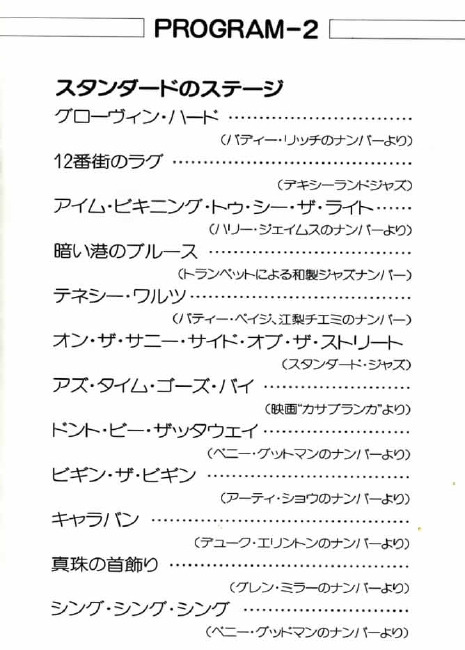 PROGRAM-2
スタンダードのステージ
グローヴィン・ハード ……………………………
(バディー・リッチのナンバーより)
12番街のラグ ……………………………
(デキシーランドジャズ)
アイム・ビキニング・トゥ・シー・ザ・ライト……
(ハリー・ジェイムスのナンバーより)
暗い港のブルース ……………………………
(トランペットによる和製ジャズナンバー)
テネシー・ワルツ……………………………
(パティー・ペイジ、江梨チエミのナンバー)
オン・ザ・サニー・サイド・オブ・ザ・ストリート
(スタンダード・ジャズ)
アズ・タイム・ゴーズ・バイ ……………………
(映画"カサブランカ"より)
ドント・ビー・ザッタウェイ……………………
(ベニー・グットマンのナンバーより)
ビギン・ザ・ビギン ……………………………
(アーティ・ショウのナンバーより)
キャラバン ……………………………………
(デューク・エリントンのナンバーより)
真珠の首飾り ……………………………………
(グレン・ミラーのナンバーより)
シング・シング・シング ………………………
(ベニー・グッドマンのナンバーより)